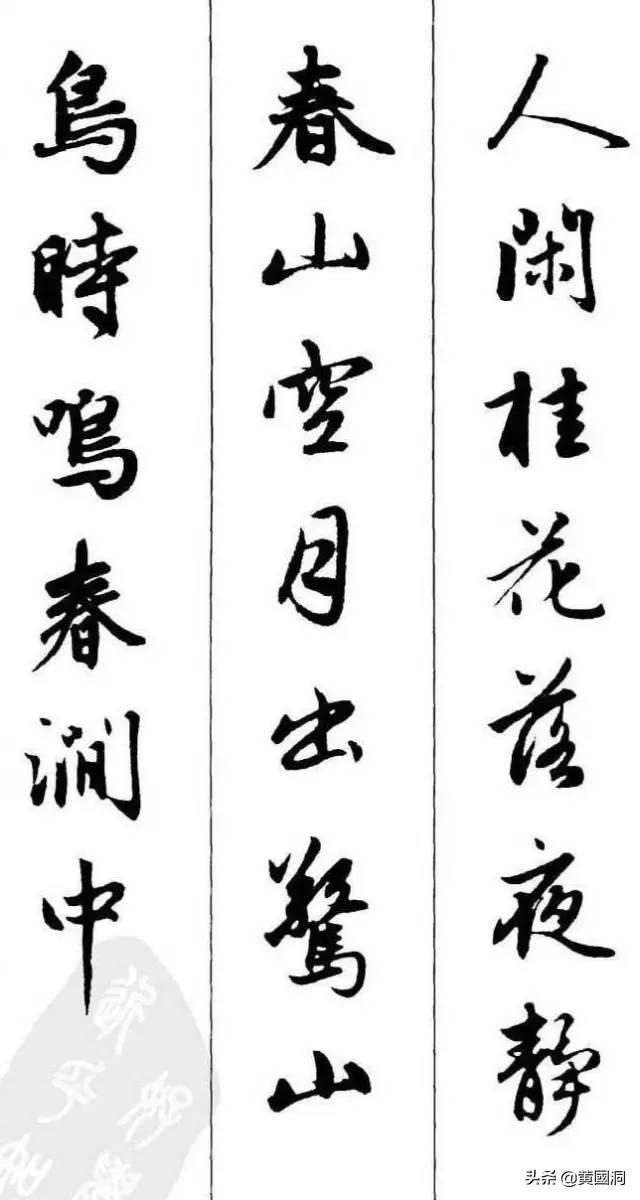 人閑桂花落夜靜
春山空月出驚山
鳥時鳴春澗中
头条 @黄國洞